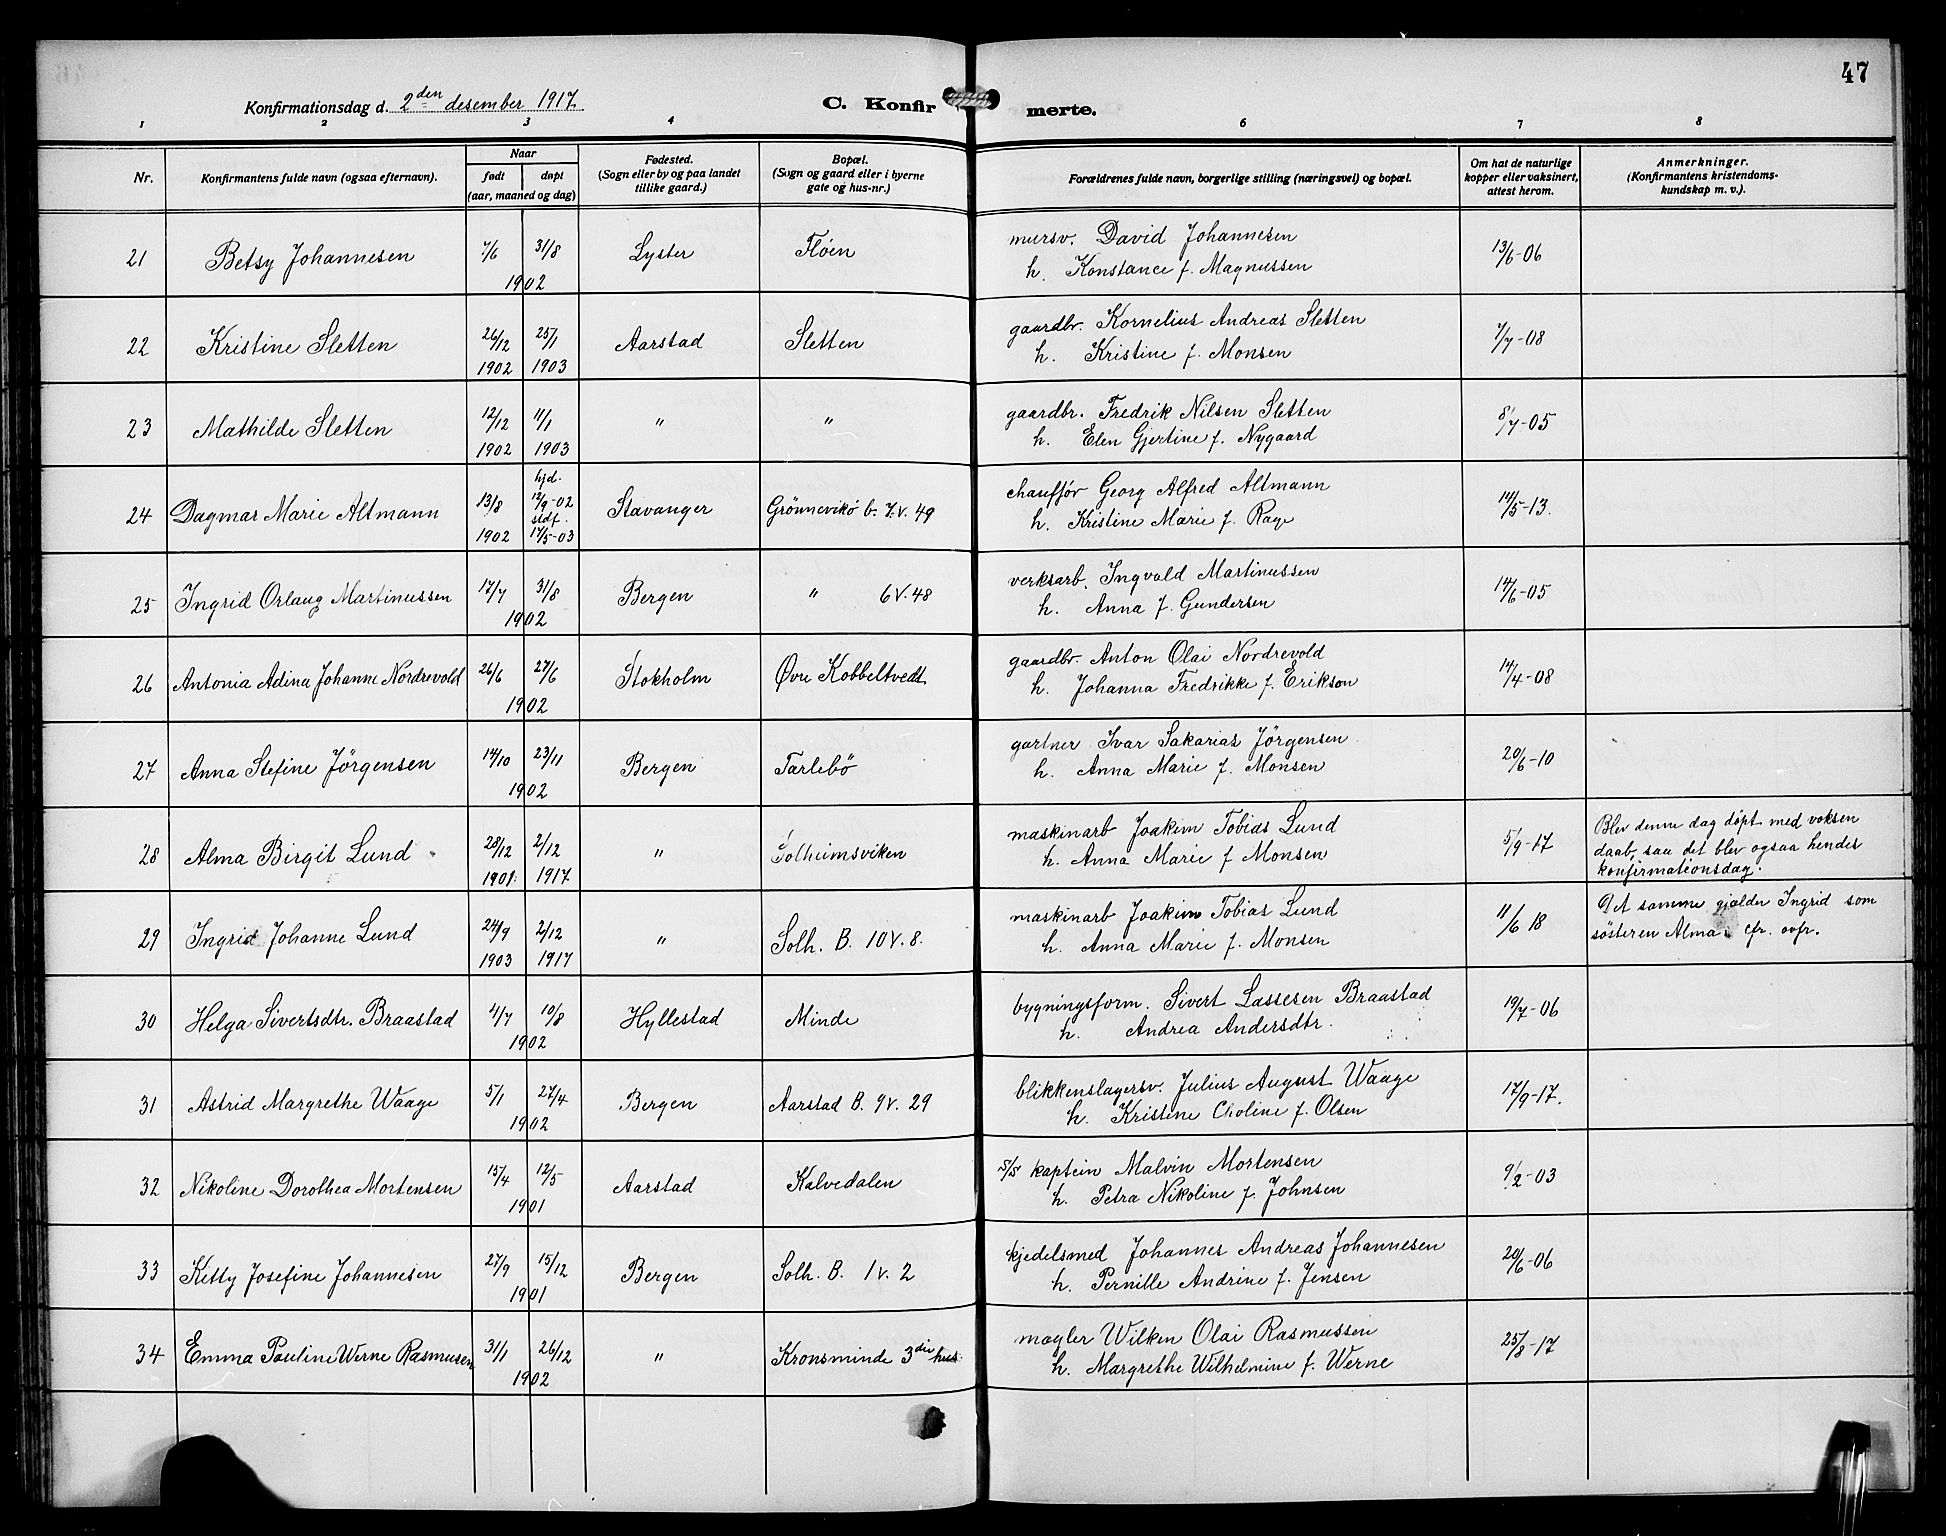 47
Konfirmationsdag d. 2den desember 1917.
C. Konfir merte.
1 2 3 4 5 6 7 8
Nr.
Konfirmantens fulde navn (ogsaa efternavn).
Naar
født døpt
(aar, maaned og dag)
Fødested.
(Sogn eller by og paa landet
tillike gaard.)
Bopæl.
(Sogn og gaard eller i byerne
gate og hus-nr.)
Forældrenes fulde navn, borgerlige stilling (næringsvei) og bopæl.
Om hat de naturlige
kopper eller vaksinert,
attest herom.
Anmerkninger.
(Konfirmantens kristendoms-
kundskap m. v.).
21 Betsy Johannesen 7/6 31/8 1902 Lyster Fløen mursv. David Johannesen 13/6-06
h. Konstance f. Magnussen
22 Kristine Sletten 26/12 1902 25/1 1903 Aarstad Sletten gaardbr. Kornelius Andreas Sletten 7/7-08
h. Kristine f. Monsen
23 Mathilde Sletten 12/12 1902 11/1 1903 " " gaardbr. Fredrik Nilsen Sletten 8/7-05
h. Elen Gjertine f. Nygaard
24 Dagmar Marie Altmann 13/8 1902 hjd. 12/9-02 stdf. 17/5-03 Stavanger Grönnevikö b. 7. v. 49 chaufför Georg Alfred Altmann 14/5-13.
h. Kristine Marie f. Rage
25 Ingrid Orlaug Martinussen 17/7 31/8 1902 Bergen " 6 V. 48 verksarb. Ingvald Martinussen 14/6-05
h. Anna f. Gundersen
26 Antonia Adina Johanne Nordrevold 26/6 27/6 1902 Stokholm Øvre Kobbeltvedt gaardbr. Anton Olai Nordrevold 14/4-08
h. Johanna Fredrikke f. Erikson
27 Anna Stefine Jörgensen 14/10 23/11 1902 Bergen Tarlebö gartner Ivar Sakarias Jörgensen 20/6-10
h. Anna Marie f. Monsen
28 Alma Birgit Lund 28/12 1901. 2/12 1917 " Solheimsviken maskinarb Joakim Tobias Lund 5/9-17 Blev denne dag døpt med voksen
h. Anna Marie f Monsen daab, saa det blev ogsaa hendes
konfirmationsdag.
29 Ingrid Johanne Lund 24/9 1903 2/12 1917 " Solh. B. 10 V. 8. maskinarb Joakim Tobias Lund 11/6 18 Det samme gjælder Ingrid som
h. Anna Marie f. Monsen søsteren Alma. cfr. ovfr.
30 Helga Sivertsdtr. Braastad 4/7 10/8 1902 Hyllestad Minde bygningsform. Sivert Lassesen Braastad 19/7-06
h. Andrea Andersdtr.
31 Astrid Margrethe Waage 5/1 27/4 1902 Bergen Aarstad B. 9 V. 29 blikkenslagersv. Julius August Waage 17/9-17.
h. Kristine Choline f. Olsen
32 Nikoline Dorothea Mortensen 15/4 12/5 1901 Aarstad Kalvedalen S/S kaptein Malvin Mortensen 9/2-03
h. Petra Nikoline f. Johnsen
33 Kitty Josefine Johannesen 27/9 15/12 1901 Bergen Solh. B. 1 v. 2 kjedelsmed Johannes Andreas Johannesen 20/6-06
h. Pernille Andrine f. Jensen
34 Emma Pauline Werne Rasmusen 31/1 26/12 1902 " Kronsminde 3die hus mægler Wilken Olai Rasmussen 25/8-17
h. Margrethe Wilhelmine f. Werne